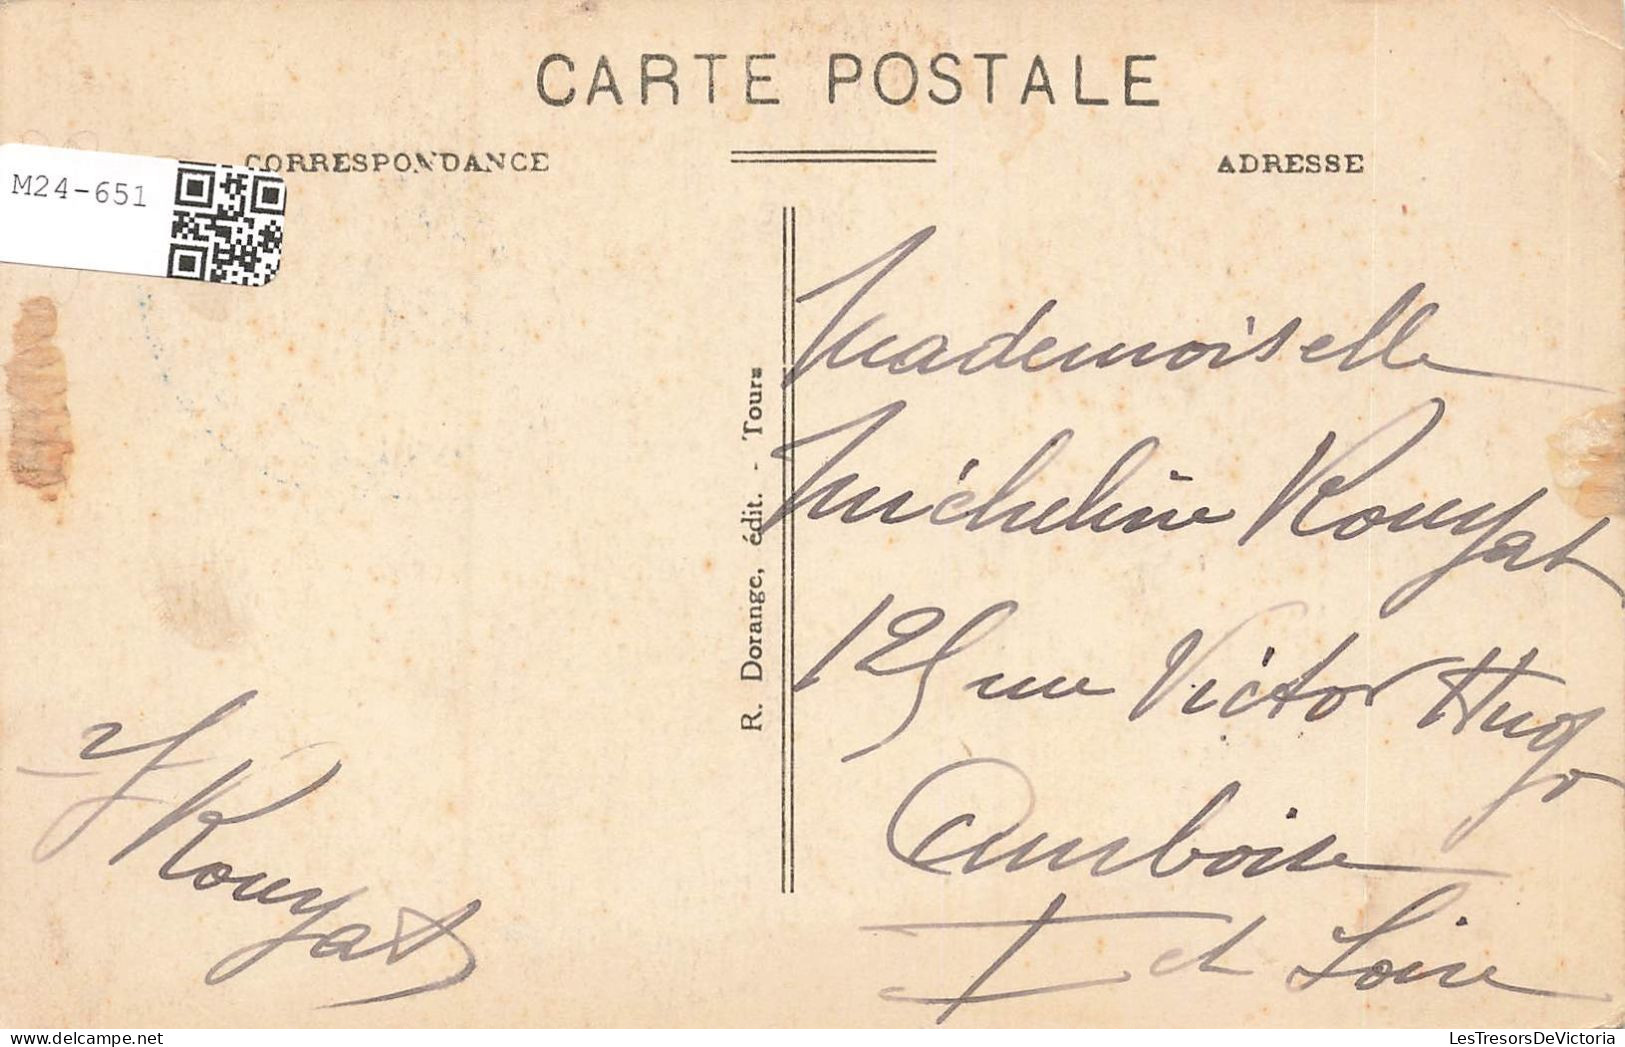 CARTE POSTALE
CORRESPONDANCE
ADRESSE
M24-651
R. Dorange, édit. - Tours
Mademoiselle
Micheline Rouyat
125 rue Victor Hugo
Amboise
I et Loire
Rouyat
LesTresorsDeVictoria